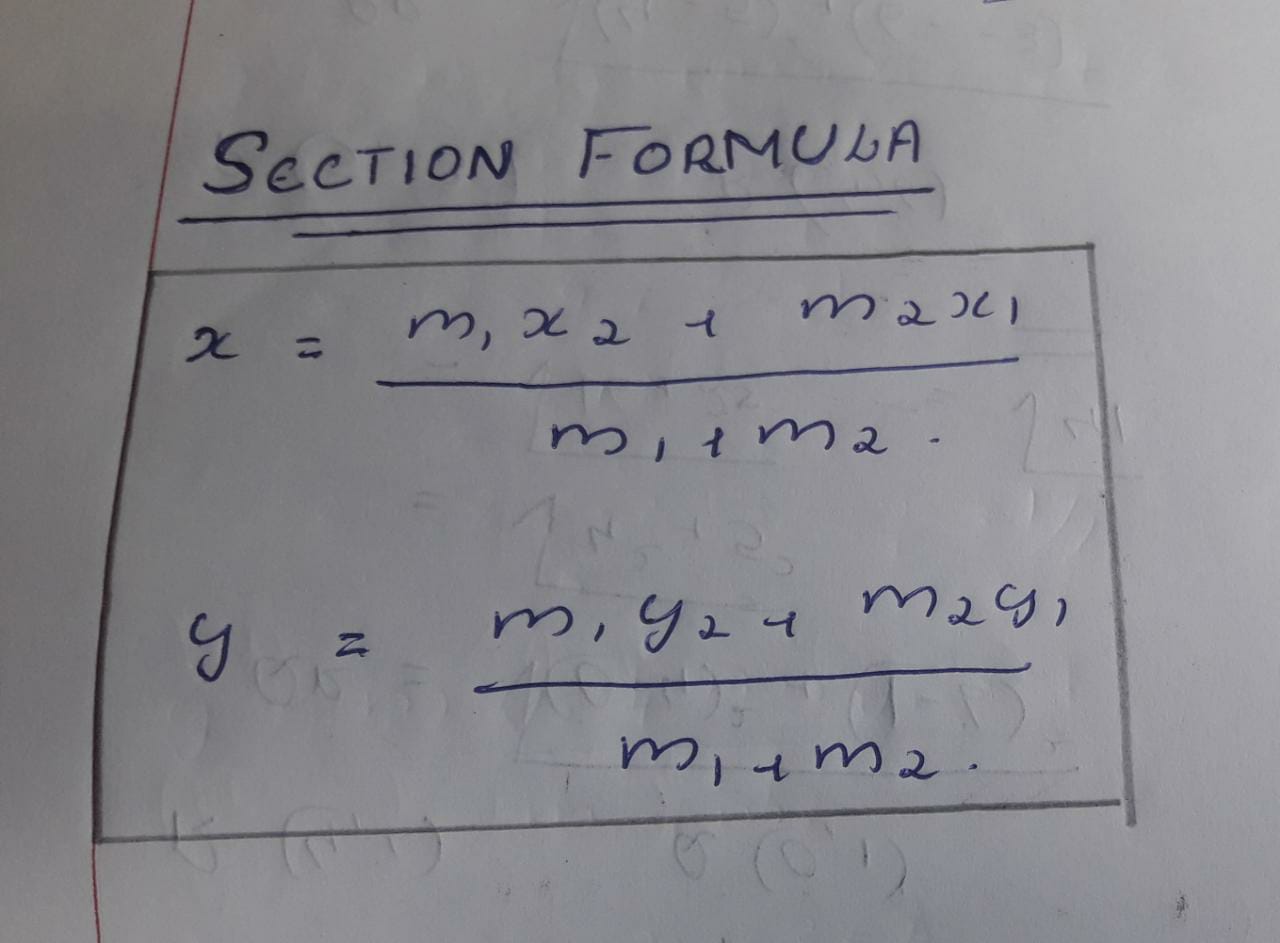 SECTION FORMULA
x = m₁x₂ + m₂x₁
m₁ + m₂.
y = m₁y₂ + m₂y₁
m₁ + m₂.